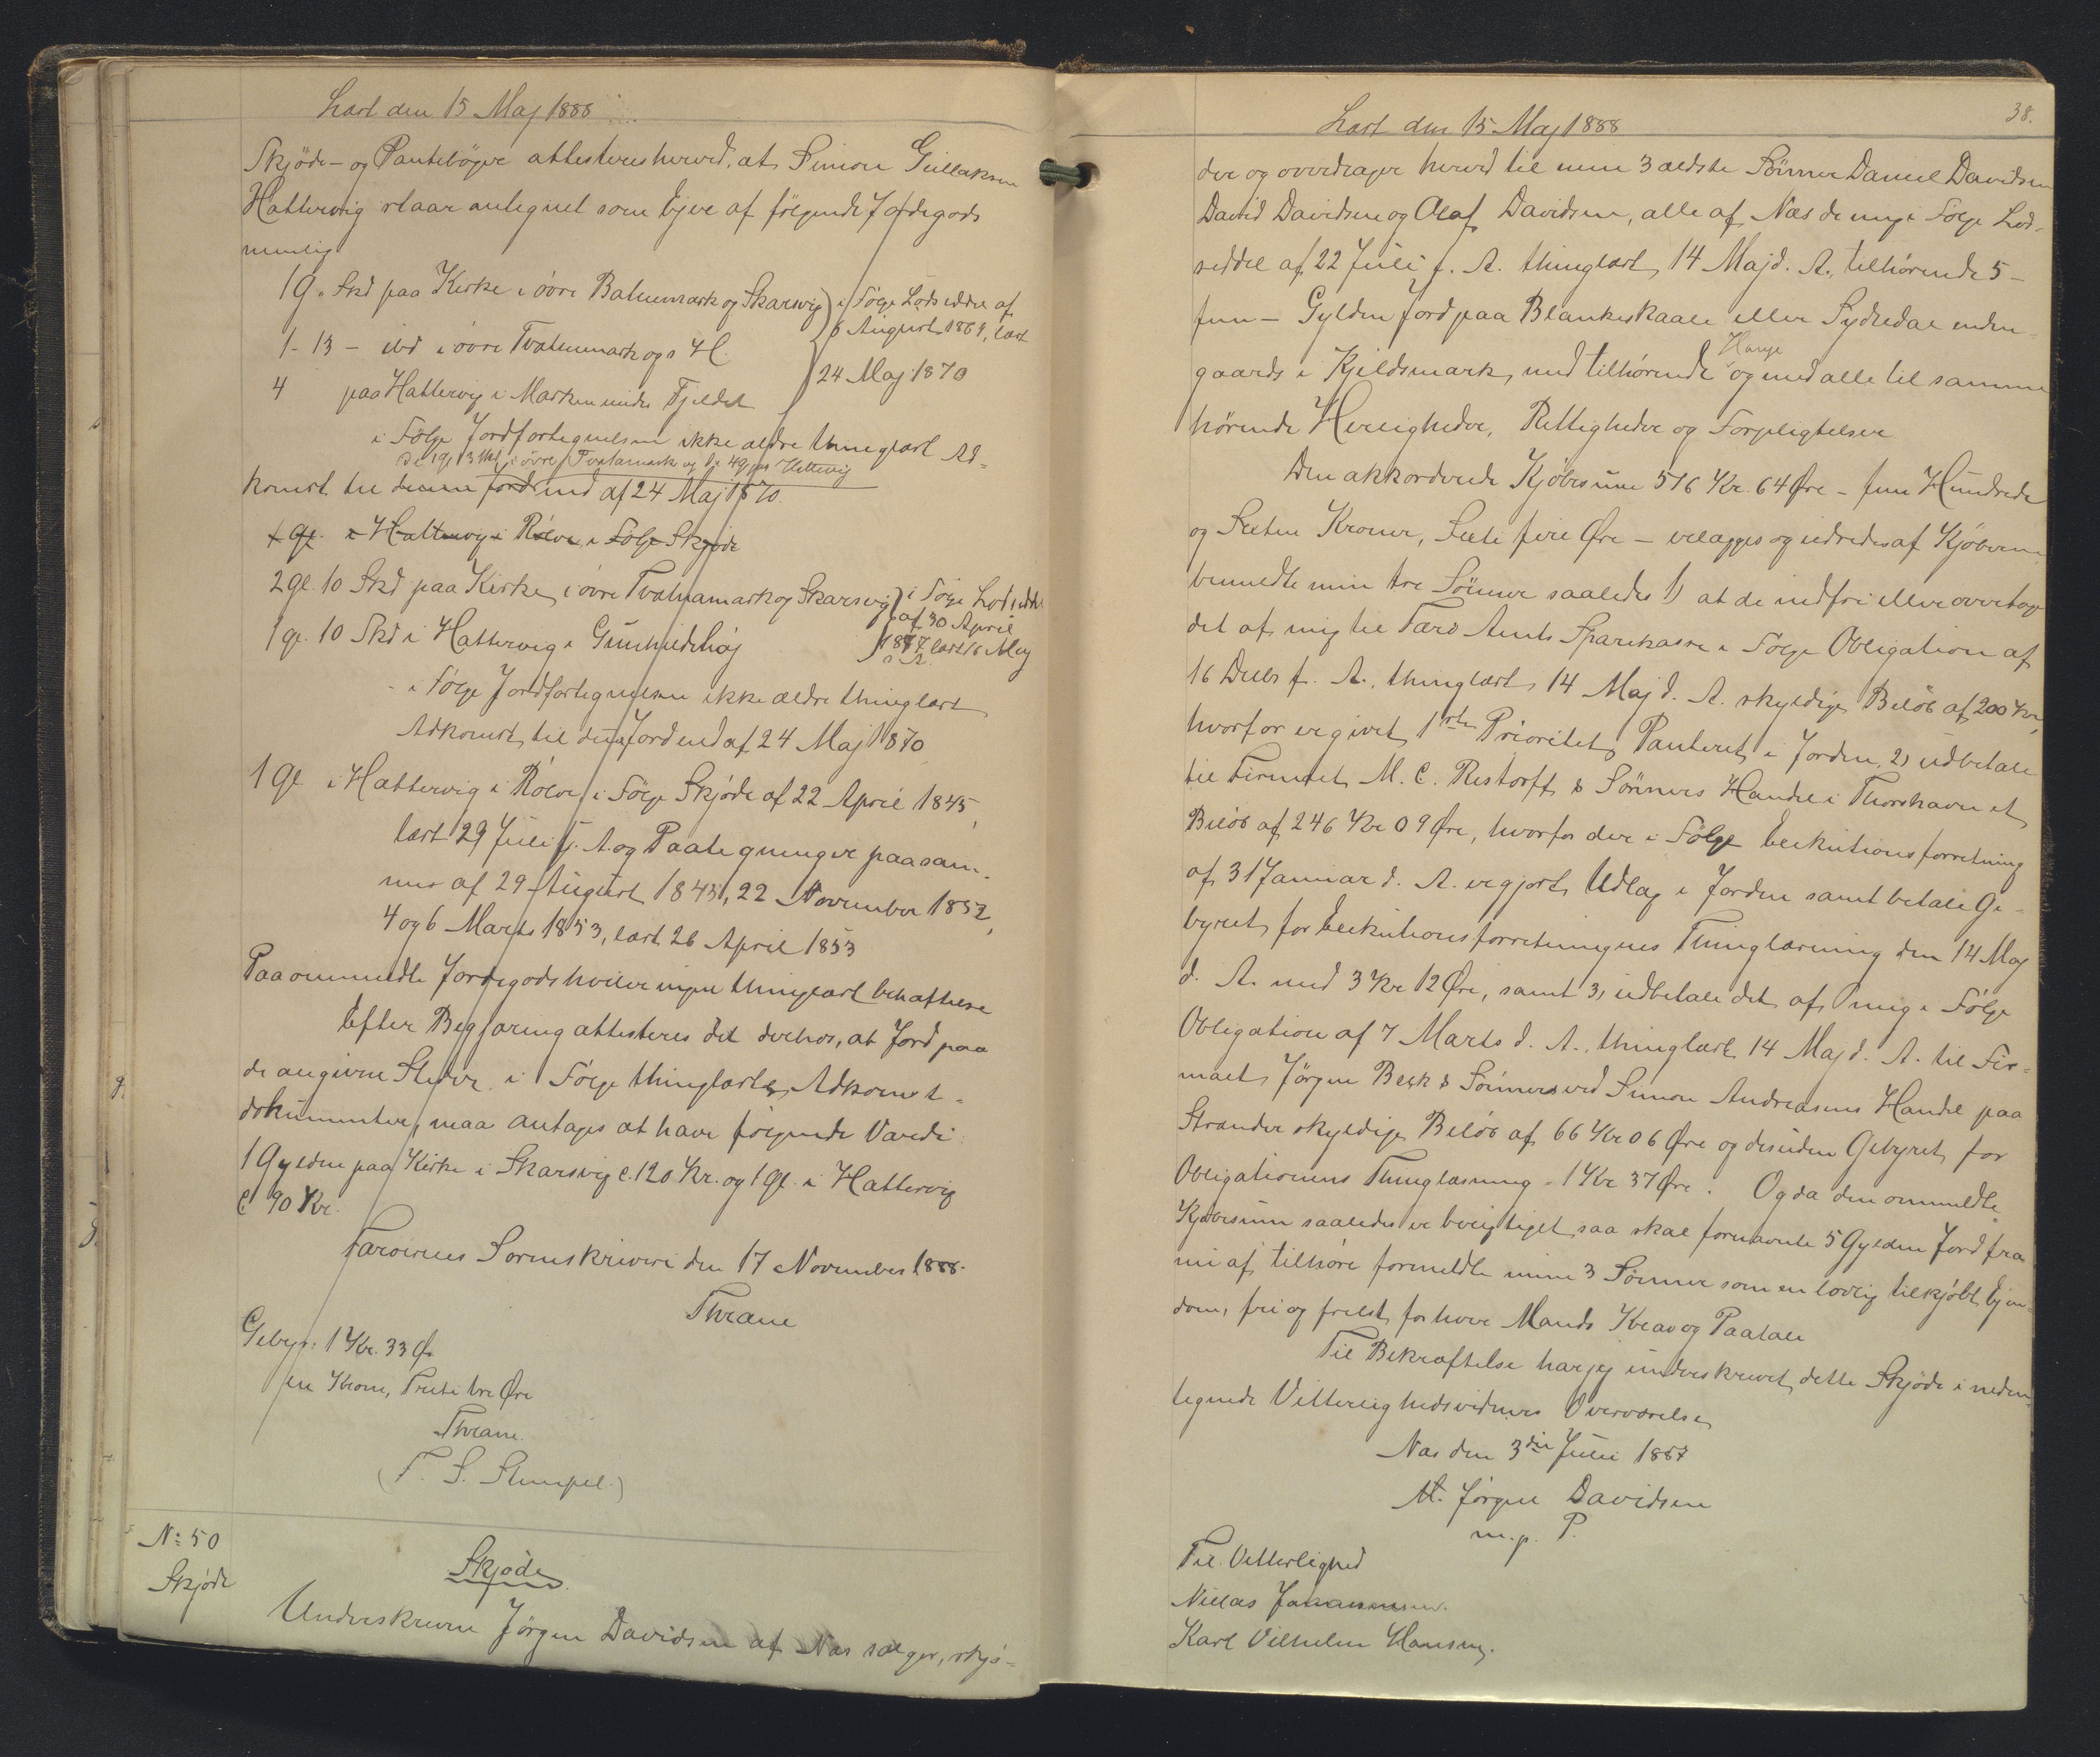 Læst den 15 Maj 1888
Skjøde- og Pantebøger attesteres herved, at Simon Gullaksen
Hattervig staar antegnet som Ejer af følgende Jordegods
nemlig
1 G. " Skd paa Kirke i øvre Batnemark og Skarsvig } i Følge Lodseddel af
6 August 1869, læst
1 - 13 - ibd i øvre Tvatnemark og s H.
24 Maj 1870
4 paa Hattervig i Marken under Fjeldet
i Følge Jordfortegnelsen ikke ældre thinglæst Ad-
de 1 G 13 Skd i øvre Tvatnamark og de 4 G paa Hattervig
komst til denne Jord end af 24 Maj 1870.
1 Gl. i Hattervig i Rólve, i Følge Skjøde
2 Gl. 10 Skd paa Kirke i øvre Tvatnamark og Skarsvig } i Følge Lodseddel
af 30 April
1 Gl. 10 Skd i Hattervig i Gunhildshøj
1887 læst 16 Maj
s. A.
i Følge Jordfortegnelsen ikke ældre thinglæst
Adkomst til denne Jord end af 24 Maj 1870
1 Gl i Hattervig i Rólve, i Følge Skjøde af 22 April 1845,
læst 29 Juli s. A. og Paategninger paa sam-
me af 29 August 1845, 22 November 1852,
4 og 6 Marts 1853, læst 26 April 1853
Paa ommeldte Jordegods hviler ingen thinglæst behæftelse
Efter Begjæring attesteres det derhos, at Jord paa
de angivne Steder i Følge thinglæste Adkomst-
dokumenter, maa antages at have følgende Værdi
1 Gylden paa Kirke i Skarsvig c. 120 Kr. og 1 Gl. i Hattervig
c. 90 Kr.
Færøernes Sorenskriveri den 17 November 1888.
Thrane
Gebyr: 1 Kr. 33 Ø.
en Krone, Treti tre Øre
Thrane.
(F. S. Stempel.)
No: 50
Skjøde
Skjøde
Underskrevne Jørgen Davidsen af Næs sælger, skjø-
38.
Læst den 15 Maj 1888
der og overdrager herved til mine 3 ældste Sønner Daniel Davidsen
David Davidsen og Olaf Davidsen, alle af Næs de mig i Følge Lod-
seddel af 22 Juli f. A. thinglæst 14 Maj d. A., tilhørende 5 -
fem - Gylden Jord paa Blankeskaale eller Sydredal inden-
Hauge
gaards i Kjeldsmark, med tilhørende og med alle til samme
hørende Herligheder, Rettigheder og Forpligtelser
Den akkorderede Kjøbesum 516 Kr. 64 Øre - fem Hundrede
og Sexten Kroner, Sexti fire Øre - erlægges og udredes af Kjøberne
bemeldte mine tre Sønner saaledes 1) at de indfri eller overtage
det af mig til Færø Amts Sparekasse i Følge Obligation af
16 Decbr f. A., thinglæst 14 Maj d. A. skyldige Beløb af 200 Kr,
hvorfor er givet 1ste Prioritets Panteret i Jorden, 2) udbetale
til Firmaet M. C. Restorff & Sønners Handel i Thorshavn et
Beløb af 246 Kr 09 Øre, hvorfor der i Følge Exekutionsforretning
af 31 Januar d. A. er gjort Udlæg i Jorden samt betale Ge-
byret for Exekutionsforretningens Thinglæsning den 14 Maj
d. A. med 3 Kr 12 Øre, samt 3, udbetale det af mig i Følge
Obligation af 7 Marts d. A., thinglæst 14 Maj d. A. til Fir-
maet Jørgen Beck & Sønners ved Simon Andreasens Handel paa
Strander skyldige Beløb af 66 Kr 06 Øre og desuden Gebyret for
Obligationens Thinglæsning - 1 Kr 37 Øre. Og da den ommeldte
Kjøbesum saaledes er berigtiget, saa skal fornævnte 5 Gylden Jord fra
nu af tilhøre formeldte mine 3 Sønner som en lovlig tilkjøbt Ejen-
dom, fri og frelst for hver Mands Krav og Paatale
Til Bekræftelse har jeg underskrevet dette Skjøde i neden-
tegnede Vitterlighedsvidners Overværelse
Næs den 3die Juli 1887
M. Jørgen Davidsen
m. p. P.
Til Vitterlighed
Niclas Johannesen.
Karl Vilhelm Hansen.